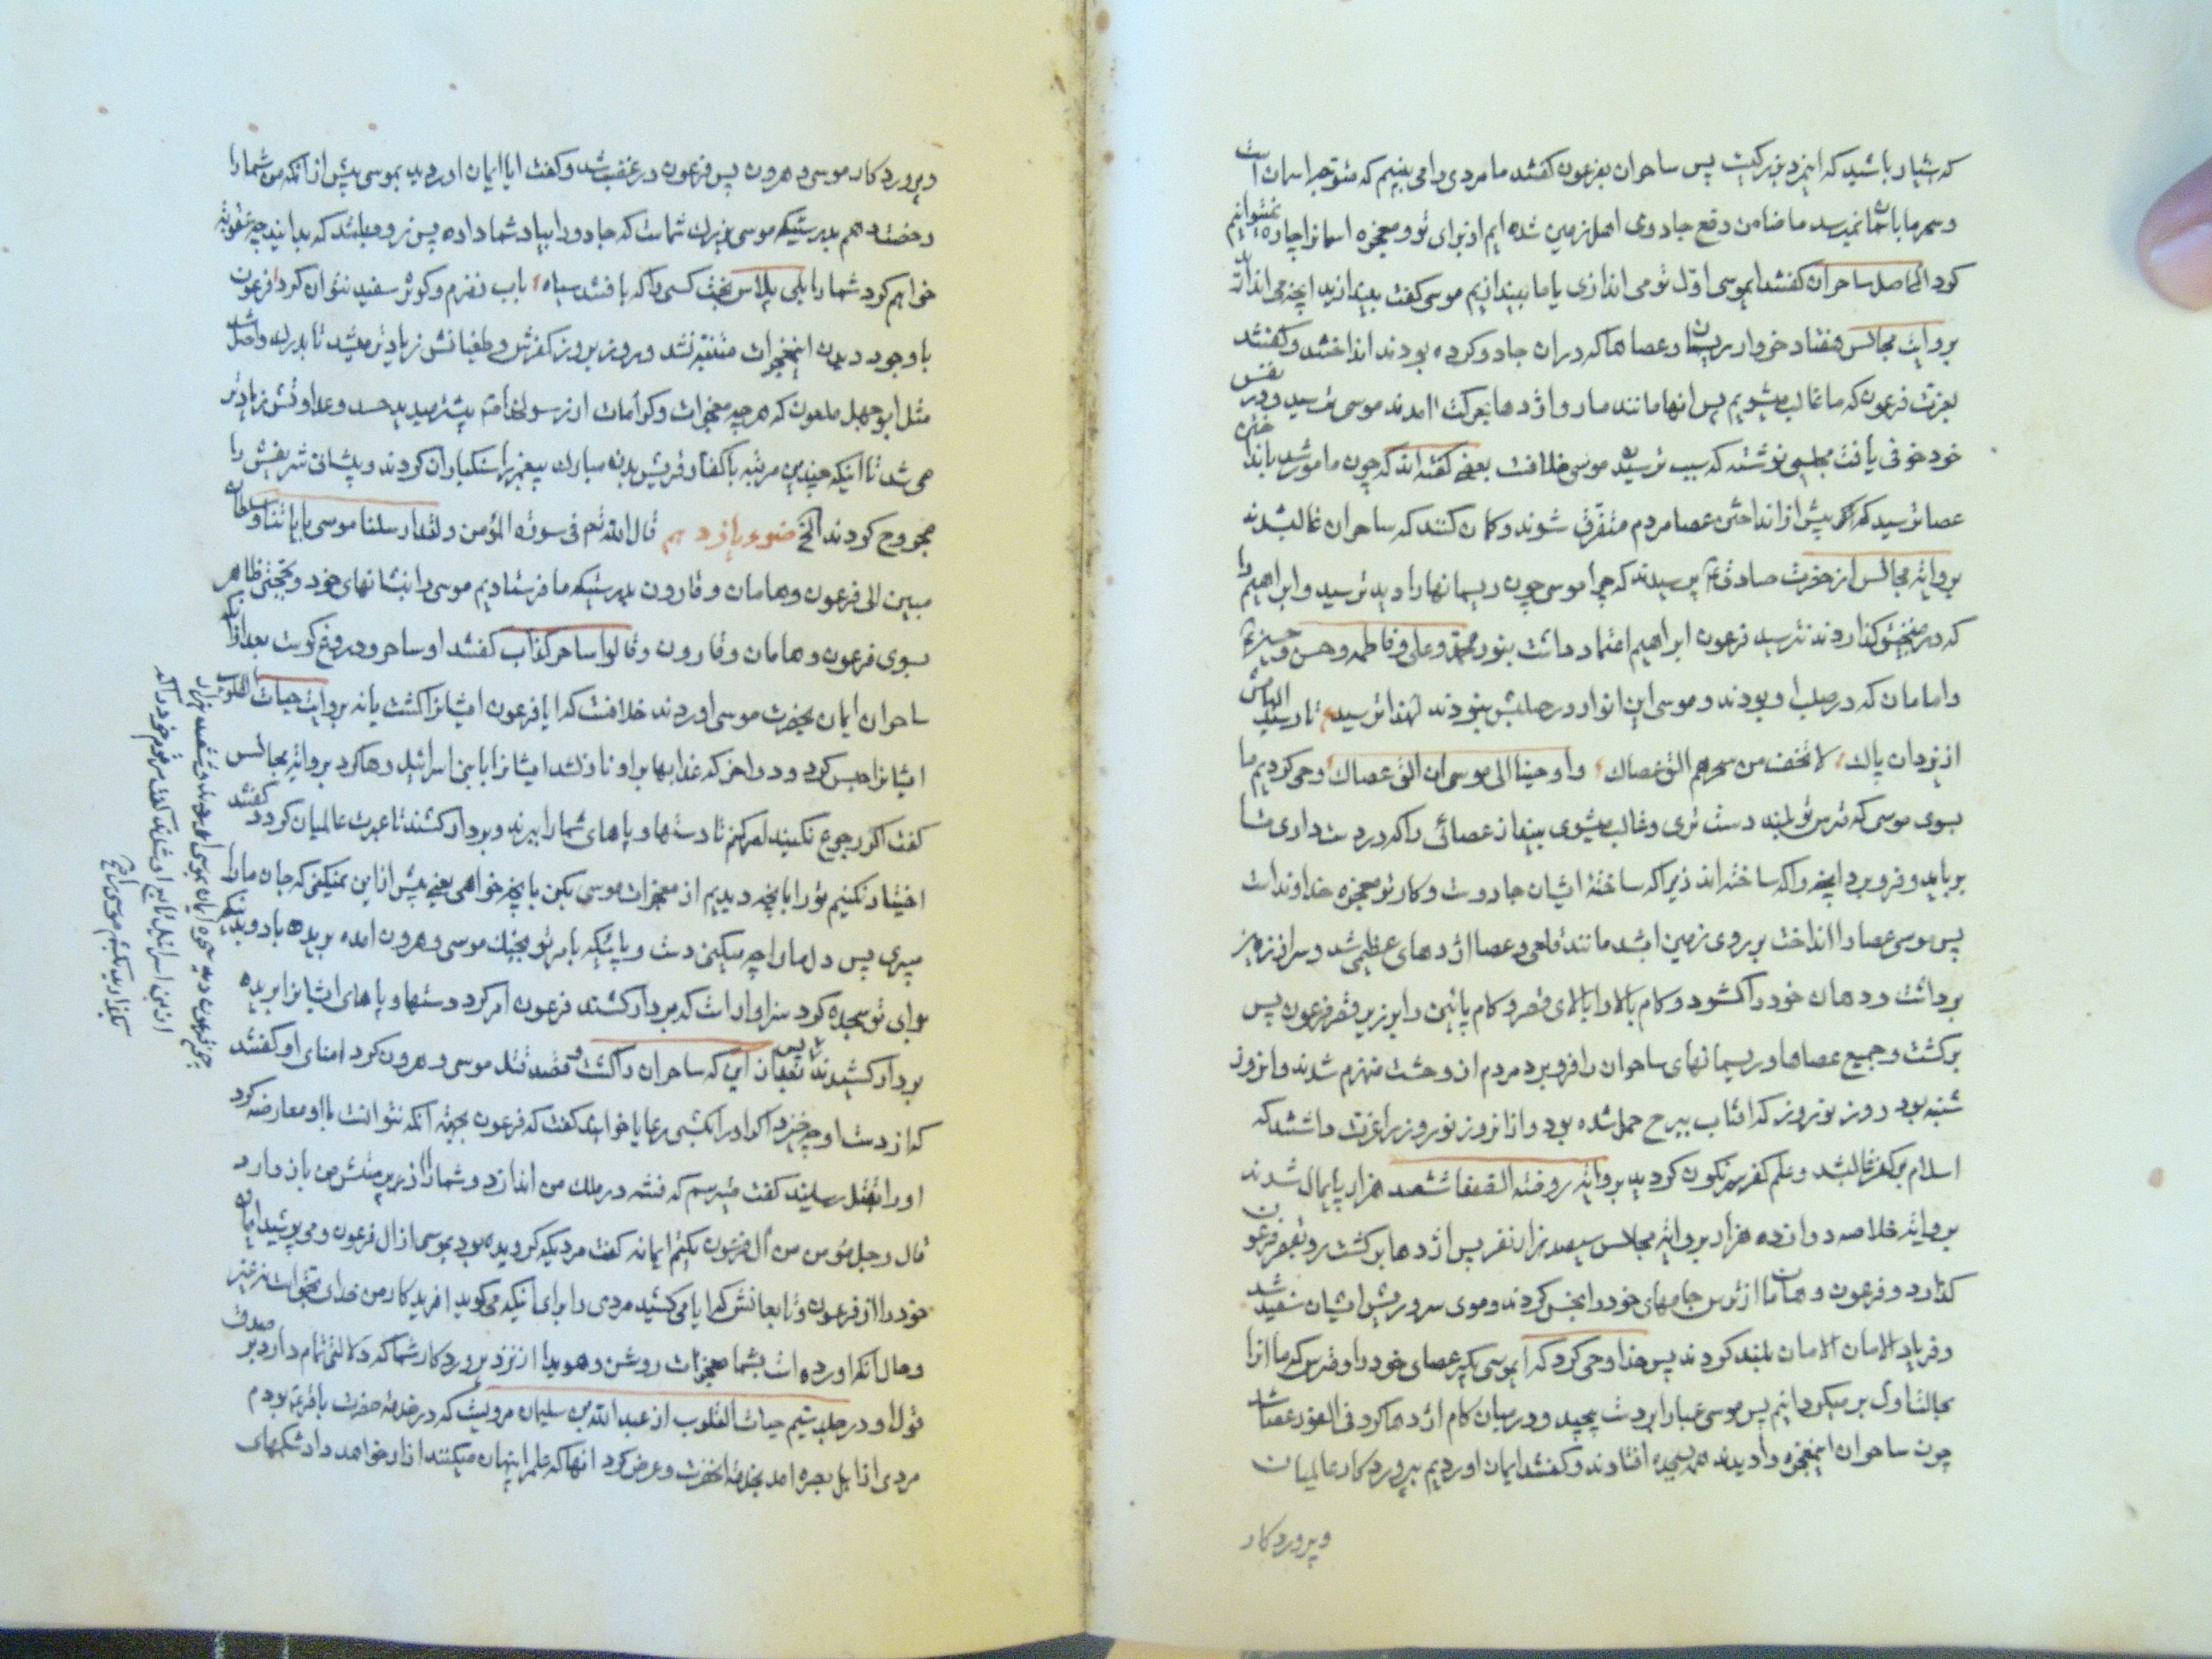 که هشیار باشید که این مرد بزرگیست پس ساحران بفرعون گفتند ما مردی را می بینیم که متوجه اسمان است
و سحر ما باسمان نمیرسد ما ضامن دفع جادوی اهل زمین شده ایم از برای تو و معجزه اسمانرا چاره نمیتوانیم
کرد الحاصل ساحران گفتند ایموسی اول تو می اندازی یا ما بیندازیم موسی گفت بیندازید انچه می اندازید
بروایت مجالس هفتاد خروار ریسمان و عصاها که دران جادو کرده بودند انداختند و گفتند
بعزت فرعون که ما غالب میشویم پس انها مانند مار و اژدها بحرکت امدند موسی ترسید و در نفس
خود خوفی یافت مجلسی نوشته که سبب ترسیدن موسی خلافت بعضی گفته اند که چون مامور شد بانداختن
عصا ترسید که پیش از انداختن عصا مردم متفرق شوند و کمان کنند که ساحران غالب شدند
بروایة مجالس از حضرت صادق ع پرسیدند که چرا موسی چون ریسمانها را دید ترسید و ابراهیم را
که در منجنیق گذاردند نترسید فرمود ابراهیم اعتماد داشت بنور محمد و علی و فاطمه و حسن و حسین
و امامان که در صلب او بودند و موسی این انوار در صلبش نبودند لهذا ترسید تا رسید الهامش
از یزدان پاک لا تخف من سحرهم الق عصاک و اوحینا الی موسی ان الق عصاک وحی کردیم ما
بسوی موسی که مترس تو بلند دست تری و غالب میشوی بینداز عصائی را که در دست داری تا
برباید و فرو برد انچه را که ساخته اند زیرا که ساخته ایشان جادوست و کار تو معجزه خداوند است
پس موسی عصا را انداخت بر روی زمین اب شد مانند قلعی و عصا اژدهای عظیمی شد و سر از زمین
برداشت و دهان خود را گشود و کام بالا را بالای قصر و کام پائین را بر زیر قصر فرعون پس
برگشت و جمیع عصاها و ریسمانهای ساحران را فرو برد مردم از وحشت منهزم شدند و انروز
شنبه بود روز نوروز که افتاب ببرج حمل شده بود و از انروز نوروز را عزت داشتند که
اسلام بر کفر غالب شد و علم کفر سرنگون کردید بروایة روضة الصفا ششصد هزار پایمال شدند
بروایة خلاصه دوازده هزار بروایة مجالس سیصد هزار نفر پس اژدها برگشت رو بقصر فرعون
گذارد و فرعون و هامان از ترس جامهای خود را نجس کردند و موی سر و ریش ایشان سفید شد
و فریاد الامان الامان بلند کردند پس خدا وحی کرد که ایموسی بگیر عصای خود را و مترس که ما انرا
بحالت اول بر میگردانیم پس موسی عبا را بر دست پیچید و در میان کام اژدها کرد فی الفور عصا شد
چون ساحران اینمعجزه را دیدند همه بسجده افتادند و گفتند ایمان اوردیم بپروردکار عالمیان
و پروردکار
و پروردکار موسی و هرون پس فرعون در غضب شد و گفت ایا ایمان اوردید بموسی پیش از انکه من شما را
رخصت دهم بدرستیکه موسی بزرک شماست که جادو را بیاد شما داده پس زود میباشد که بدانید چه عقوبة
خواهم کرد شما را بلی پلاس بخت کسی را که بافتند سیاه باب زمزم و کوثر سفید نتوان کرد فرعون
با وجود دیدن اینمعجزات متنبه نشد و روز بروز کفرش و طغیانش زیادتر میشد تا بدرک واصل شد
مثل ابو جهل ملعون که هر چه معجزات و کرامات از رسولخدا ص بیشتر میدید حسد و عداوتش زیادتر
می شد تا اینکه چندین مرتبه با کفار قریش بدن مبارک پیغمبر را سنکباران کردند و پیشانی شریفش را
مجروح کردند الخ ضوء یازدهم قال الله تع فی سورة المؤمن و لقد ارسلنا موسی بایاتنا و سلطان
مبین الی فرعون و هامان و قارون بدرستیکه ما فرستادیم موسی را بنشانهای خود و حجتی ظاهر
بسوی فرعون و هامان و قارون و قالوا ساحر کذاب گفتند او ساحر و دروغ گوست بعد از انکه
ساحران ایمان بحضرت موسی اوردند خلافست که ایا فرعون ایشانرا کشت یا نه بروایت حیات القلوب
ایشانرا حبس کرد و در اخر که عذابها بر او نازل شد ایشانرا با بنی اسرائیل رها کرد بروایة مجالس
گفت اگر رجوع نکنید امر کنم تا دستها و پاهای شما را ببرند و بردار کشند تا عبرت عالمیان گردد گفتند
اختیار نکنیم تو را بانچه دیدیم از معجزات موسی بکن بانچه خواهی یعنی بیش از این نمیکنی که جان ما را
میبری پس دل ما را چه میکنی دست و پائیکه بامر تو بجنک موسی و هرون امده بریده باد و بدنیکه
برای تو سجده کرد سزاوار است که بردار کشند فرعون امر کرد دستها و پاهای ایشانرا بریده
بردار کشیدند پس بعد از این که ساحران را کشت قصد قتل موسی و هرون کرد امنای او گفتند
که از دست او چه خیزد اگر او را بکشی رعایا خواهند گفت که فرعون بجهة انکه نتوانست با او معارضه کرد
او را بقتل رسانید گفت میترسم که فتنه در ملک من اندازد و شما را از پرستش من باز دارد
قال رجل مؤمن من ال فرعون یکتم ایمانه گفت مردیکه گرویده بود بموسی از ال فرعون و می پوشید ایمان
خود را از فرعون و تابعانش که ایا می کشید مردی را برای انیکه می گوید افریدکار من خدای
و حال انکه اورده است بشما معجزات روشن و هویدا از نزد پروردکار شما که دلالتی تمام دارد بر صدق
قول او در جلد یتیم حیات القلوب از عبد الله بن سلیمان مرویست که در خدمة حضرت باقر ع بودم
مردی از اهل بصره امد بخدمة انحضرت و عرض کرد انها که علم را پنهان میکنند ازار خواهد داد شکمهای